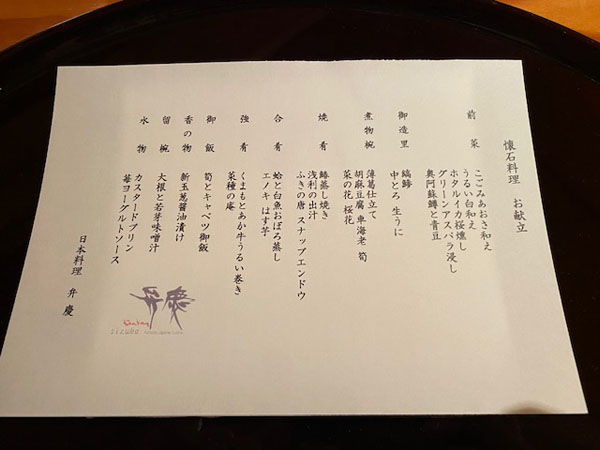 懐石料理 お献立
前菜
こごみあおさ和え
うるい白和え
ホタルイカ桜燻し
グリーンアスパラ浸し
奥阿蘇鱒と青豆
御造里
縞鯵
中とろ 生うに
煮物椀
薄葛仕立て
胡麻豆腐 車海老 筍
菜の花 桜花
焼肴
鰆蒸し焼き
浅利の出汁
ふきの唐 スナップエンドウ
合肴
蛤と白魚おぼろ蒸し
エノキ はす芋
強肴
くまもとあか牛うるい巻き
菜種の庵
御飯
筍とキャベツ御飯
香の物
新玉葱醤油漬け
留椀
大根と若芽味噌汁
水物
カスタードプリン
苺ヨーグルトソース
日本料理 弁慶
弁慶